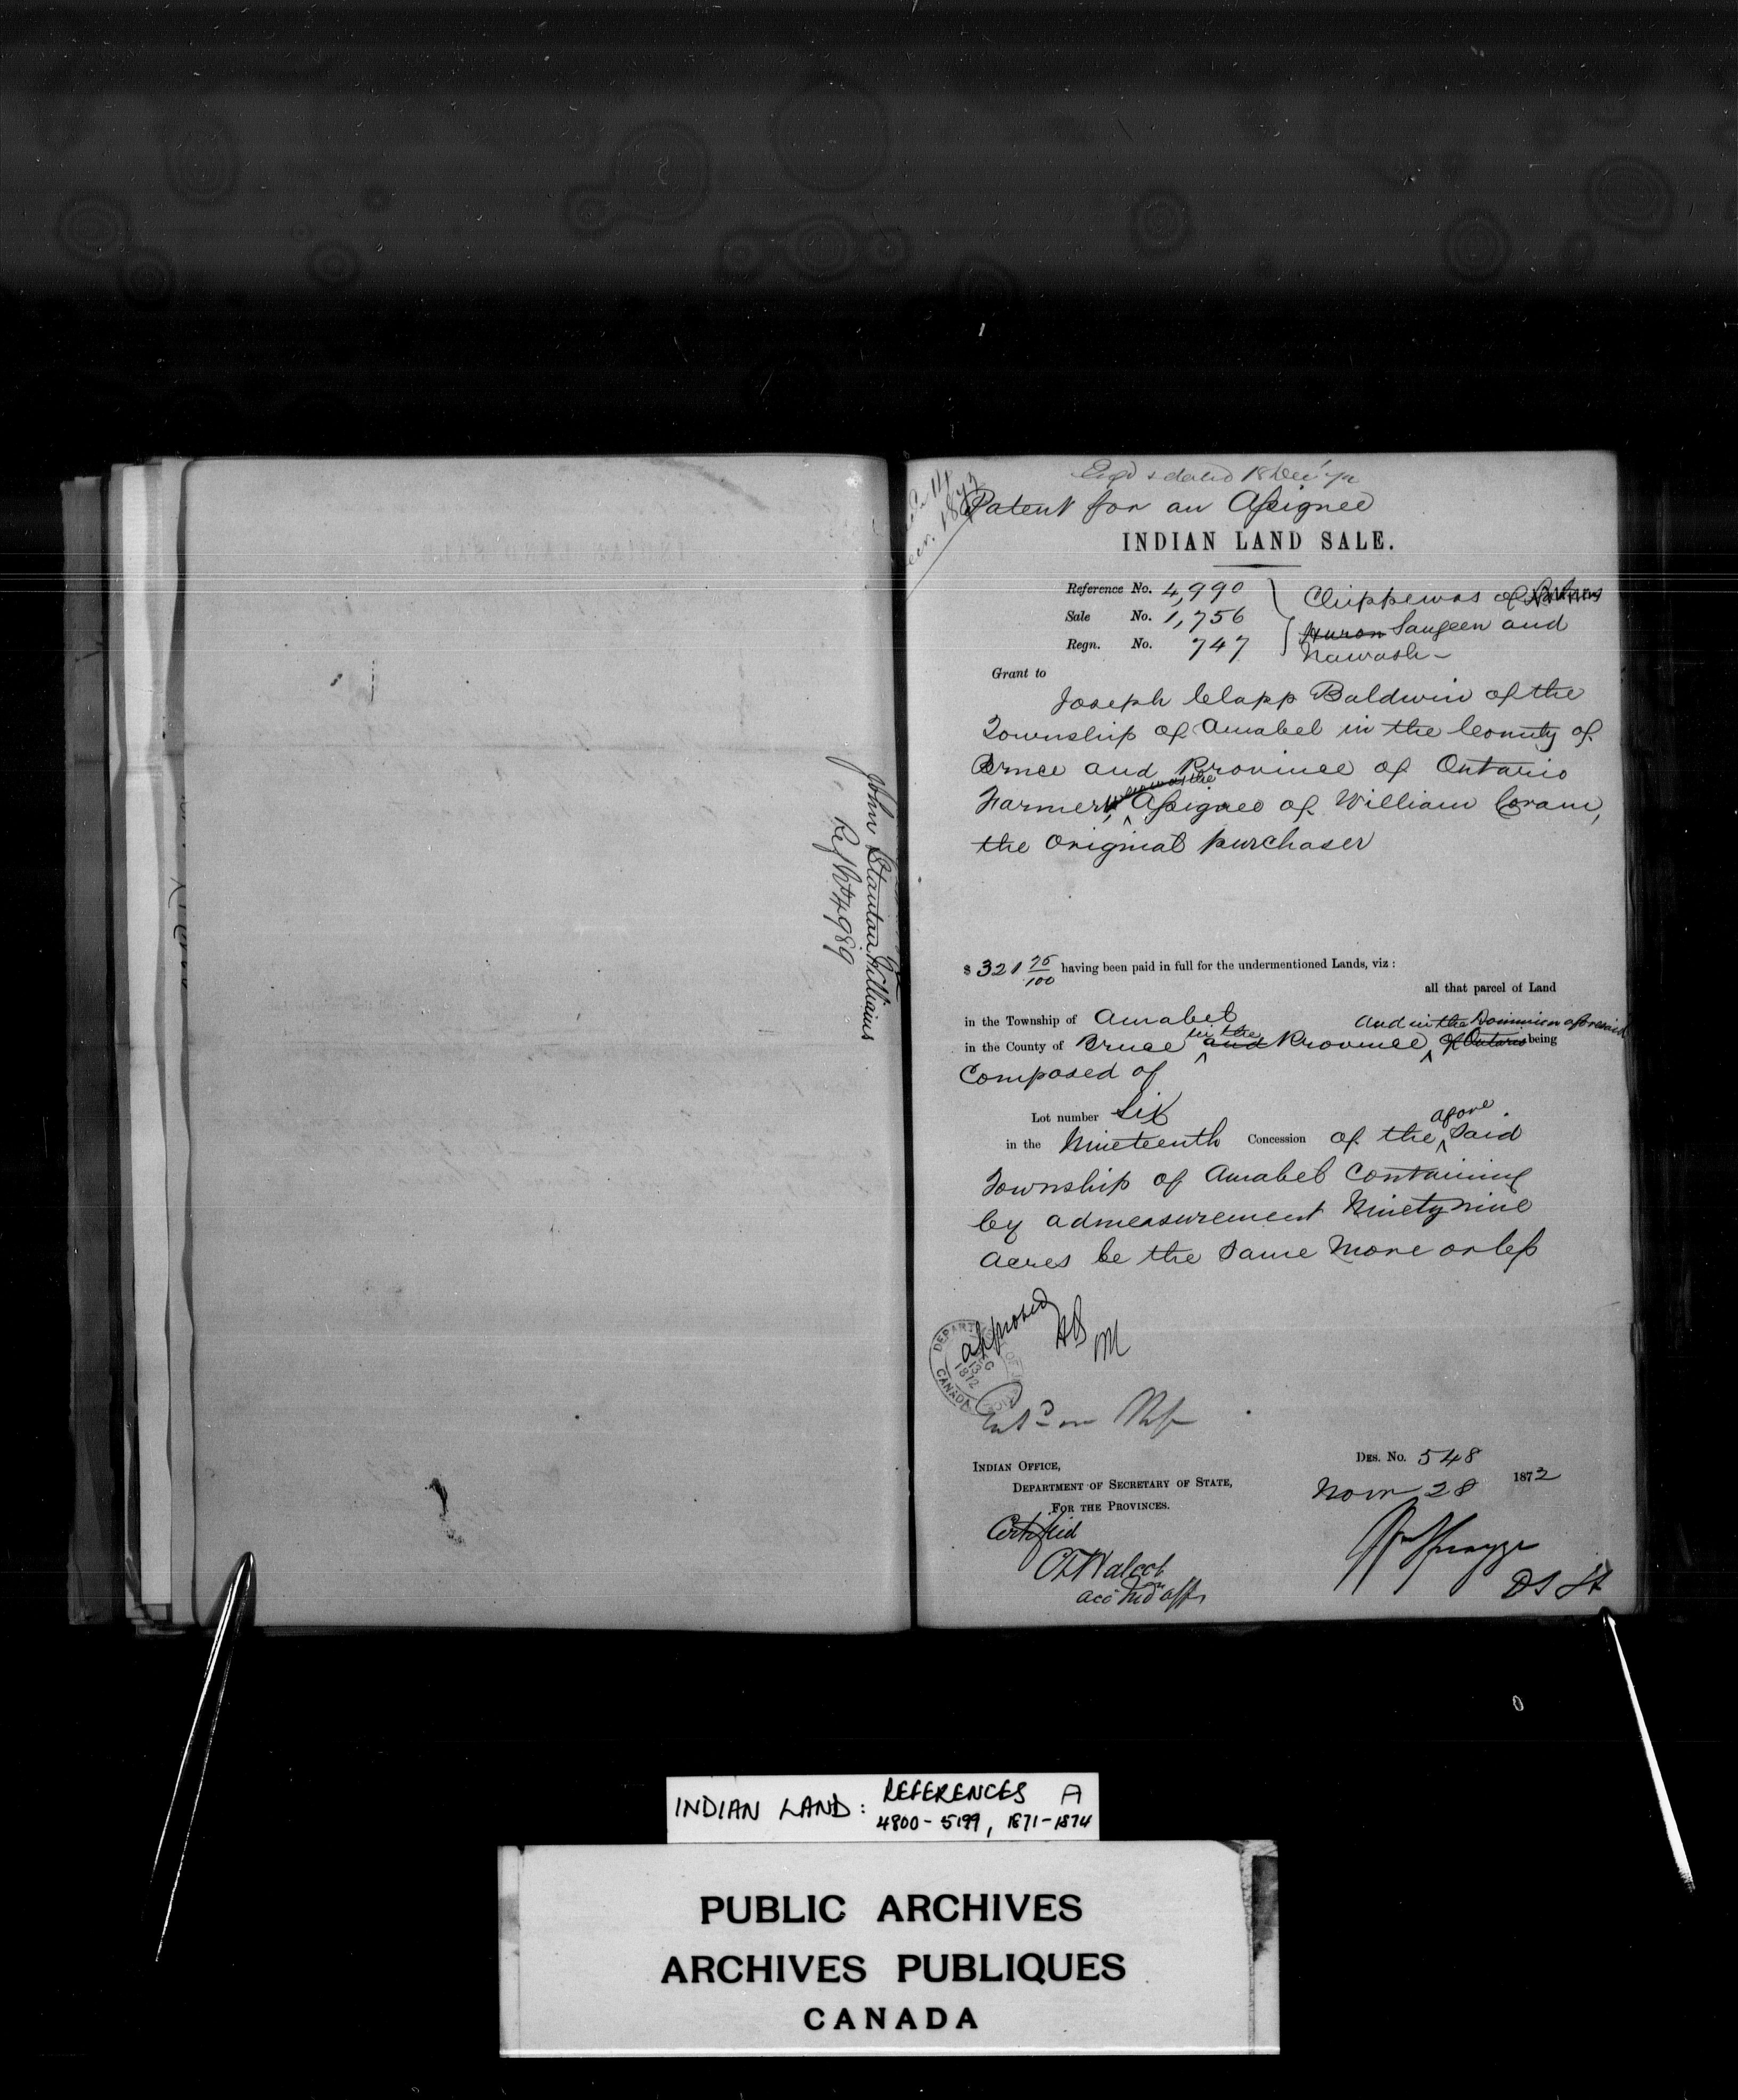 John Stanton Williams
Ref No 4989
Eng'd & dated 18 Dec '72
Patent for an Assignee
INDIAN LAND SALE.
Reference No. 4,990
Sale No. 1,756
Regn. No. 747
Chippewas of
Huron Saugeen and
Nawash -
Grant to
Joseph Clapp Baldwin of the
Township of Amabel in the County of
Bruce and Province of Ontario
Farmer, Assignee of William Coram,
the Original purchaser
$ 321 75/100 having been paid in full for the undermentioned Lands, viz :
all that parcel of Land
in the Township of Amabel
and in the Dominion aforesaid
in the County of Bruce in the and Province of Ontario being
Composed of
Lot number Six
in the Nineteenth Concession of the afore said
Township of Amabel Containing
by admeasurement Ninety nine
Acres be the Same More or less
approved
DEPART
DEC
13
1872
CANADA
INDIAN OFFICE,
DEPARTMENT OF SECRETARY OF STATE,
FOR THE PROVINCES.
Des. No. 548
Novr 28 1872
Certified
INDIAN LAND: REFERENCES A
4800-5199, 1871-1874
PUBLIC ARCHIVES
ARCHIVES PUBLIQUES
CANADA